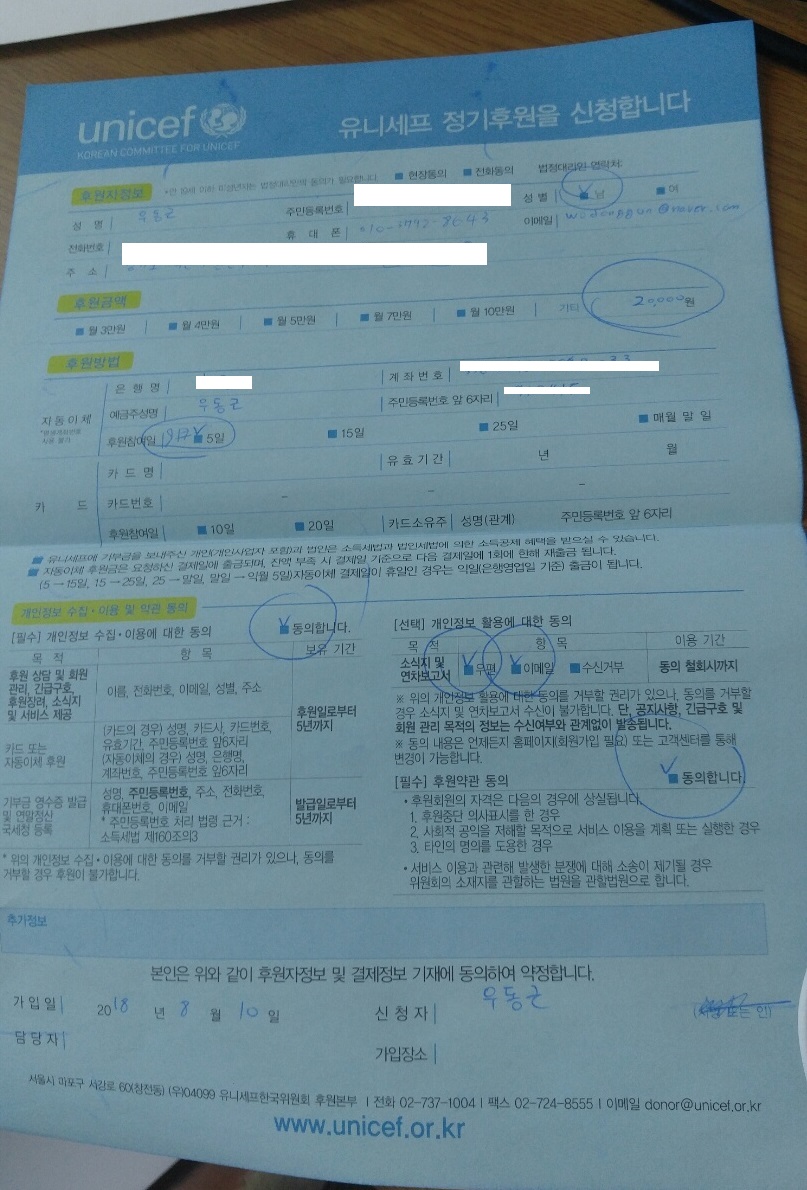 unicef
KOREAN COMMITTEE FOR UNICEF
유니세프 정기후원을 신청합니다
후원자정보 *만 19세 이하 미성년자는 법정대리인의 동의가 필요합니다. 현장동의 전화동의 법정대리인 연락처:
성 명 우동근 주민등록번호 성 별 남 여
전화번호 휴 대 폰 010-3992-8043 이메일 wudonggun@naver.com
주 소
후원금액
월 3만원 월 4만원 월 5만원 월 7만원 월 10만원 기타 20,000원
후원방법
자동이체
은 행 명 계 좌 번 호
예금주성명 우동근 주민등록번호 앞 6자리
후원참여일 5일 15일 25일 매월 말 일
카 드
카 드 명 유 효 기 간 년 월
카드번호 - - -
후원참여일 10일 20일 카드소유주 성명(관계) 주민등록번호 앞 6자리
유니세프에 기부금을 보내주신 개인(개인사업자 포함)과 법인은 소득세법과 법인세법에 의한 소득공제 혜택을 받으실 수 있습니다.
자동이체 후원금은 요청하신 결제일에 출금되며, 잔액 부족 시 결제일 기준으로 다음 결제일에 1회에 한해 재출금 됩니다.
(5→15일, 15→25일, 25→말일, 말일→익월 5일)자동이체 결제일이 휴일인 경우는 익일(은행영업일 기준) 출금이 됩니다.
개인정보 수집·이용 및 약관 동의
[필수] 개인정보 수집·이용에 대한 동의 동의합니다.
목 적 항 목 보유 기간
후원 상담 및 회원
관리, 긴급구호,
후원장려, 소식지
및 서비스 제공
이름, 전화번호, 이메일, 성별, 주소
카드 또는
자동이체 후원
(카드의 경우) 성명, 카드사, 카드번호,
유효기간, 주민등록번호 앞6자리
(자동이체의 경우) 성명, 은행명,
계좌번호, 주민등록번호 앞6자리
후원일로부터
5년까지
기부금 영수증 발급
및 연말정산
국세청 등록
성명, 주민등록번호, 주소, 전화번호,
휴대폰번호, 이메일
* 주민등록번호 처리 법령 근거 :
소득세법 제160조의3
발급일로부터
5년까지
* 위의 개인정보 수집·이용에 대한 동의를 거부할 권리가 있으나, 동의를
거부할 경우 후원이 불가합니다.
[선택] 개인정보 활용에 대한 동의
목 적 항 목 이용 기간
소식지 및
연차보고서
우편 이메일 수신거부 동의 철회시까지
※ 위의 개인정보 활용에 대한 동의를 거부할 권리가 있으나, 동의를 거부할
경우 소식지 및 연차보고서 수신이 불가합니다. 단, 공지사항, 긴급구호 및
회원 관리 목적의 정보는 수신여부와 관계없이 발송됩니다.
※ 동의 내용은 언제든지 홈페이지(회원가입 필요) 또는 고객센터를 통해
변경이 가능합니다.
[필수] 후원약관 동의 동의합니다.
• 후원회원의 자격은 다음의 경우에 상실됩니다.
1. 후원중단 의사표시를 한 경우
2. 사회적 공익을 저해할 목적으로 서비스 이용을 계획 또는 실행한 경우
3. 타인의 명의를 도용한 경우
• 서비스 이용과 관련해 발생한 분쟁에 대해 소송이 제기될 경우
위원회의 소재지를 관할하는 법원을 관할법원으로 합니다.
추가정보
본인은 위와 같이 후원자정보 및 결제정보 기재에 동의하여 약정합니다.
가 입 일 2018 년 8 월 10 일 신 청 자 우동근 (서명 또는 인)
담 당 자 가입장소
서울시 마포구 서강로 60(창전동) (우)04099 유니세프한국위원회 후원본부 I 전화 02-737-1004 I 팩스 02-724-8555 I 이메일 donor@unicef.or.kr
www.unicef.or.kr